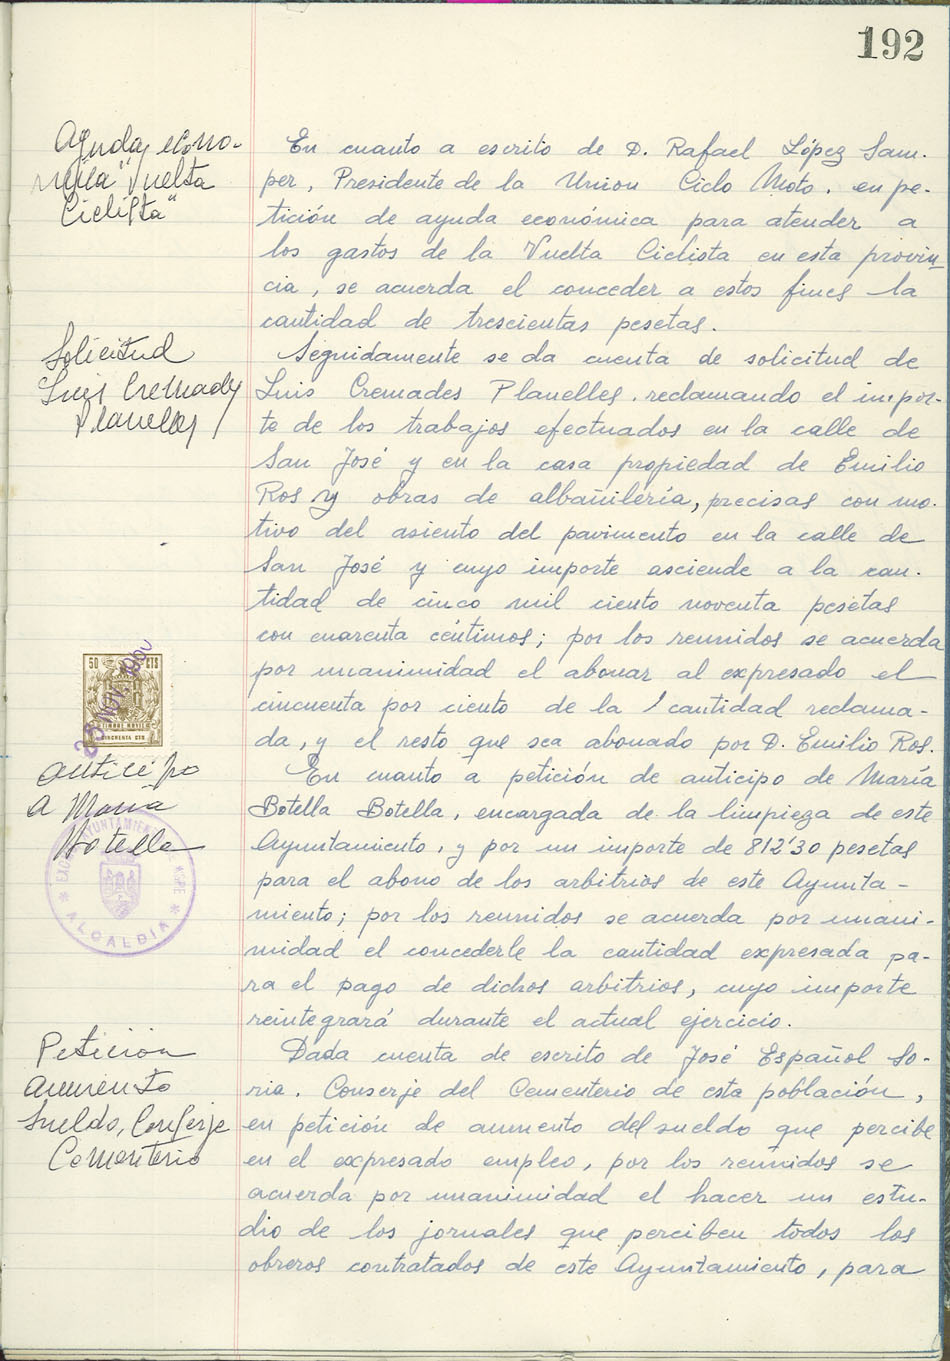 192
Ayuda econo-
mica "Vuelta
Ciclista"
En cuanto a escrito de D. Rafael López Sam-
per, Presidente de la Union Ciclo Moto, en pe-
tición de ayuda económica para atender a
los gastos de la Vuelta Ciclista en esta provin-
cia, se acuerda el conceder a estos fines la
cantidad de trescientas pesetas.
Solicitud
Luis Cremades
Planelles
Seguidamente se da cuenta de solicitud de
Luis Cremades Planelles, reclamando el impor-
te de los trabajos efectuados en la calle de
San José y en la casa propiedad de Emilio
Ros y obras de albañilería, precisas con mo-
tivo del asiento del pavimento en la calle de
San José y cuyo importe asciende a la can-
tidad de cinco mil ciento noventa pesetas
con cuarenta céntimos; por los reunidos se acuerda
por unanimidad el abonar al expresado el
cincuenta por ciento de la / cantidad reclama-
da, y el resto que sea abonado por D. Emilio Ros.
50 CTS
TIMBRE MOVIL
CINCUENTA CTS
23 NOV. 1960
Anticipo
a María
Botella
En cuanto a petición de anticipo de María
Botella Botella, encargada de la limpieza de este
Ayuntamiento, y por un importe de 812'30 pesetas
para el abono de los arbitrios de este Ayunta-
miento; por los reunidos se acuerda por unani-
midad el concederle la cantidad expresada pa-
ra el pago de dichos arbitrios, cuyo importe
reintegrará durante el actual ejercicio.
AYUNTAMIENTO DE ASPE
* ALCALDÍA *
Petición
aumento
sueldo, Conserje
Cementerio
Dada cuenta de escrito de José Español So-
ria, Conserje del Cementerio de esta población,
en petición de aumento del sueldo que percibe
en el expresado empleo, por los reunidos se
acuerda por unanimidad el hacer un estu-
dio de los jornales que perciben todos los
obreros contratados de este Ayuntamiento, para